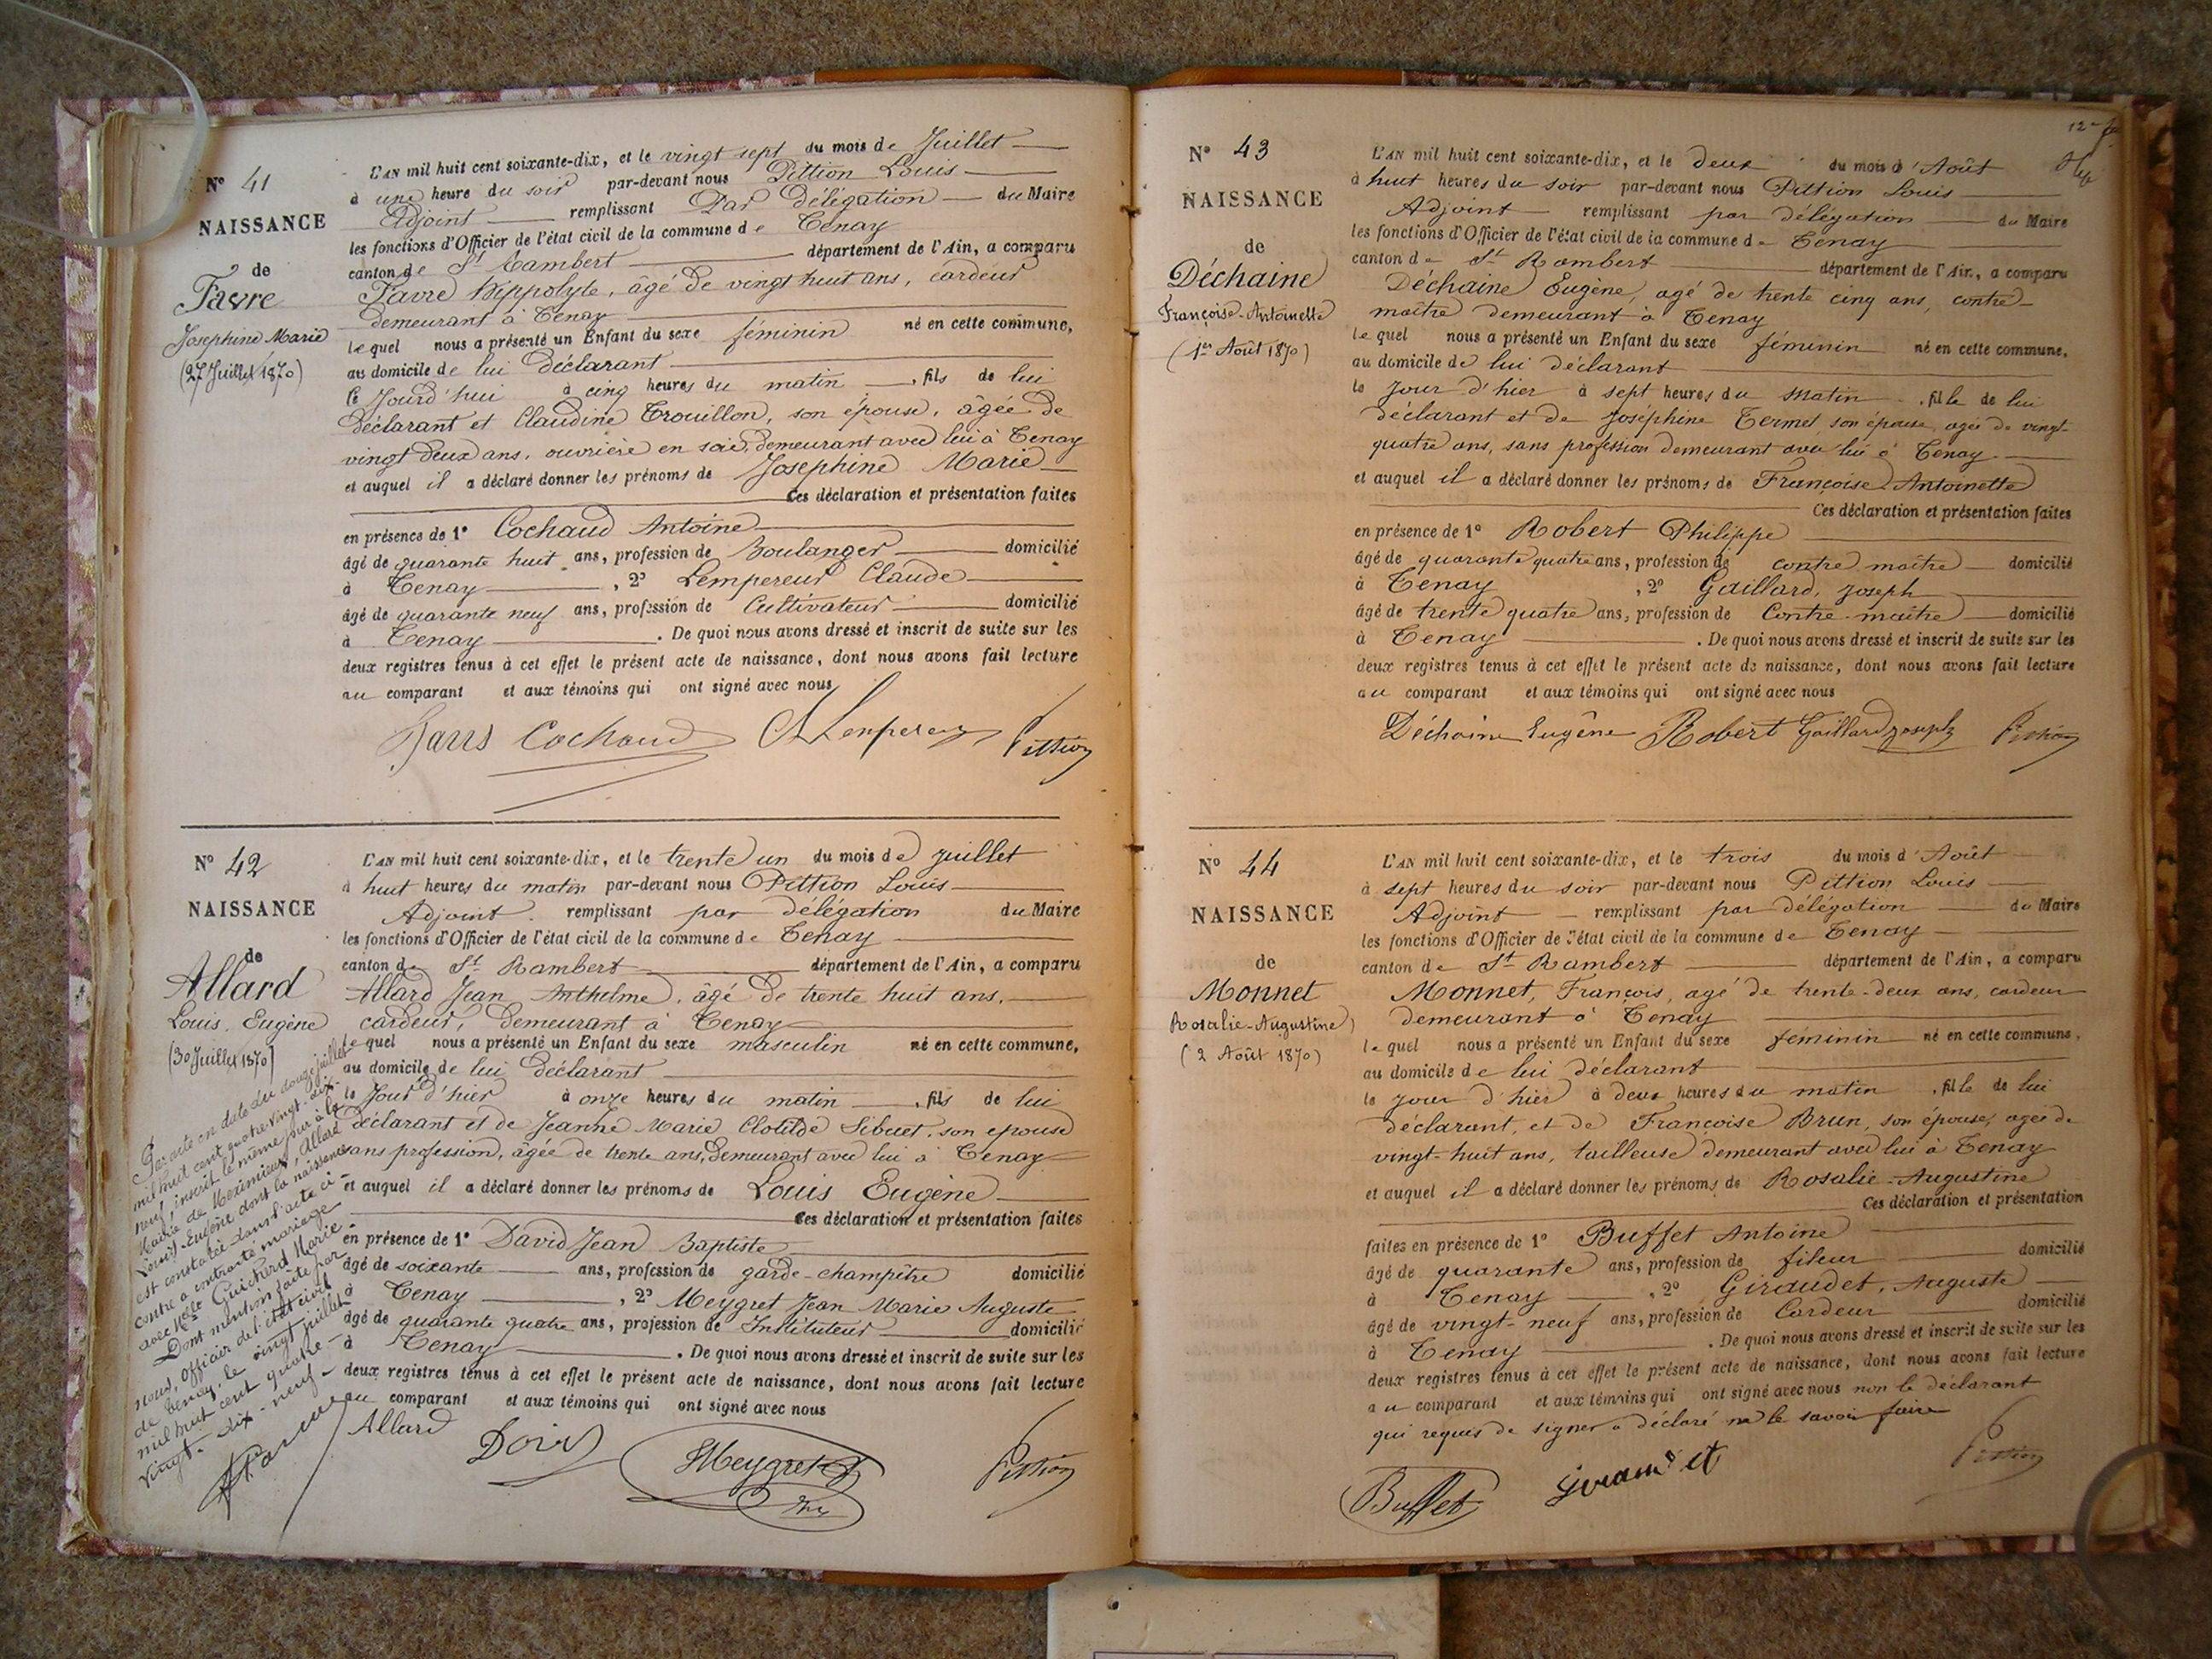 N° 41
NAISSANCE
de
Favre
Josephine Marie
(27 Juillet 1870)
L'AN mil huit cent soixante-dix, et le vingt sept du mois de Juillet
à une heure du soir par-devant nous Pittion Louis
Adjoint remplissant Par Délégation du Maire
les fonctions d'Officier de l'état civil de la commune de Tenay
canton de St Rambert département de l'Ain, a comparu
Favre Hippolyte, âgé de vingt huit ans, cardeur
demeurant à Tenay
lequel nous a présenté un Enfant du sexe féminin né en cette commune,
au domicile de lui Déclarant
le Jourd'hui à cinq heures du matin, fils de lui
Déclarant et Claudine Trouillon, son épouse, âgée de
vingt deux ans, ouvrière en soie, demeurant avec lui à Tenay
et auquel il a déclaré donner les prénoms de Josephine Marie
Ces déclaration et présentation faites
en présence de 1° Cochaud Antoine
âgé de quarante huit ans, profession de Boulanger domicilié
à Tenay, 2° Lempereur Claude
âgé de quarante neuf ans, profession de Cultivateur domicilié
à Tenay. De quoi nous avons dressé et inscrit de suite sur les
deux registres tenus à cet effet le présent acte de naissance, dont nous avons fait lecture
au comparant et aux témoins qui ont signé avec nous
Cochaud Lempereur Pittion
N° 42
NAISSANCE
de
Allard
Louis, Eugène
(30 Juillet 1870)
L'AN mil huit cent soixante-dix, et le trente un du mois de juillet
à huit heures du matin par-devant nous Pittion Louis
Adjoint remplissant par délégation du Maire
les fonctions d'Officier de l'état civil de la commune de Tenay
canton de St Rambert département de l'Ain, a comparu
Allard Jean Anthelme, âgé de trente huit ans,
cardeur, demeurant à Tenay
lequel nous a présenté un Enfant du sexe masculin né en cette commune,
au domicile de lui déclarant
le Jour d'hier à onze heures du matin, fils de lui
déclarant et de Jeanne Marie Clotilde Sibuet, son épouse
sans profession, âgée de trente ans, demeurant avec lui à Tenay
et auquel il a déclaré donner les prénoms de Louis Eugène
Ces déclaration et présentation faites
en présence de 1° David Jean Baptiste
âgé de soixante ans, profession de garde-champêtre domicilié
à Tenay, 2° Meygret Jean Marie Auguste
âgé de quarante quatre ans, profession de Instituteur domicilié
à Tenay. De quoi nous avons dressé et inscrit de suite sur les
deux registres tenus à cet effet le présent acte de naissance, dont nous avons fait lecture
au comparant et aux témoins qui ont signé avec nous
Allard Meygret Pittion
Par acte en date du douze juillet
mil huit cent quatre-vingt-dix-
neuf, inscrit le même jour à la
Mairie de Meximieux, Allard
Louis-Eugène dont la naissance
est constatée dans l'acte ci-
contre a contracté mariage
avec Melle Guichard Marie
Dont mention faite par
nous, Officier de l'état civil
de Tenay, le vingt juillet
mil huit cent quatre-
vingt-dix-neuf
12
N° 43
NAISSANCE
de
Déchaine
Françoise-Antoinette
(1er Août 1870)
L'AN mil huit cent soixante-dix, et le deux du mois d'Août
à huit heures du soir par-devant nous Pittion Louis
Adjoint remplissant par délégation du Maire
les fonctions d'Officier de l'état civil de la commune de Tenay
canton de St Rambert département de l'Ain, a comparu
Déchaine Eugène, agé de trente cinq ans, contre-
maître demeurant à Tenay
lequel nous a présenté un Enfant du sexe féminin né en cette commune,
au domicile de lui déclarant
le jour d'hier à sept heures du matin, fille de lui
déclarant et de Joséphine Termet son épouse, agée de vingt-
quatre ans, sans profession demeurant avec lui à Tenay
et auquel il a déclaré donner les prénoms de Françoise-Antoinette
Ces déclaration et présentation faites
en présence de 1° Robert Philippe
âgé de quarante quatre ans, profession de contre maître domicilié
à Tenay, 2° Gaillard, Joseph
âgé de trente quatre ans, profession de Contre-maître domicilié
à Tenay. De quoi nous avons dressé et inscrit de suite sur les
deux registres tenus à cet effet le présent acte de naissance, dont nous avons fait lecture
au comparant et aux témoins qui ont signé avec nous
Déchaine Eugêne Robert Gaillard joseph Pittion
N° 44
NAISSANCE
de
Monnet
Rosalie-Augustine
(2 Août 1870)
L'AN mil huit cent soixante-dix, et le trois du mois d'Août
à sept heures du soir par-devant nous Pittion Louis
Adjoint remplissant par délégation du Maire
les fonctions d'Officier de l'état civil de la commune de Tenay
canton de St Rambert département de l'Ain, a comparu
Monnet, François, agé de trente-deux ans, cardeur
demeurant à Tenay
lequel nous a présenté un Enfant du sexe féminin né en cette commune,
au domicile de lui déclarant
le jour d'hier à deux heures du matin, fille de lui
déclarant, et de Françoise Brun, son épouse, agée de
vingt-huit ans, tailleuse demeurant avec lui à Tenay
et auquel il a déclaré donner les prénoms de Rosalie-Augustine
Ces déclaration et présentation
faites en présence de 1° Buffet Antoine
âgé de quarante ans, profession de fileur domicilié
à Tenay, 2° Giraudet, Auguste
âgé de vingt-neuf ans, profession de Cardeur domicilié
à Tenay. De quoi nous avons dressé et inscrit de suite sur les
deux registres tenus à cet effet le présent acte de naissance, dont nous avons fait lecture
au comparant et aux témoins qui ont signé avec nous non le déclarant
qui requis de signer a déclaré ne le savoir faire
Buffet Giraudet Pittion